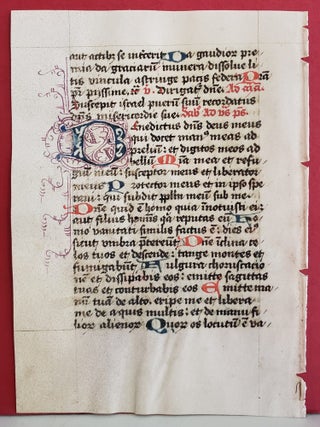 aut actib̄z se inc̄erit Da gaudior pre-
mia da graciarū munera dissolue li
tis vincula astringe pacis federa
pr̄ pijssime. Dirigat̄ dn̄e.
Suscepit isrl̄ puerū suū recordatus
misericordie sue: Sab̄ Ad vs̄ ps̄.
Benedictus dn̄s deus meus
qui docet man9 meas ad
p̄lium: et digitos meos ad
bellū Mia mea et refu-
giū meū: susceptor meus et liberator
meus Protector meus et in ipso spe-
raui: qui subdit pplm̄ meū sub me
Dn̄e quid ē homo quia īnotuisti ei:
aut filius hominis qa reputas eū Ho
mo vanitati similis factus ē: dies ei9
sicut vmbra p̄tereūt Dn̄e īclina ce-
los tuos et descende: tange montes et
fumigabūt Fulgura choruscacio-
nē et dissipabis eos: emitte sagittas
tuas et conturbabis eos Emitte ma-
num tuā de alto. eripe me et libera
me de aquis multis: et de manu fi-
lior alienor Quor os locutū ē va-